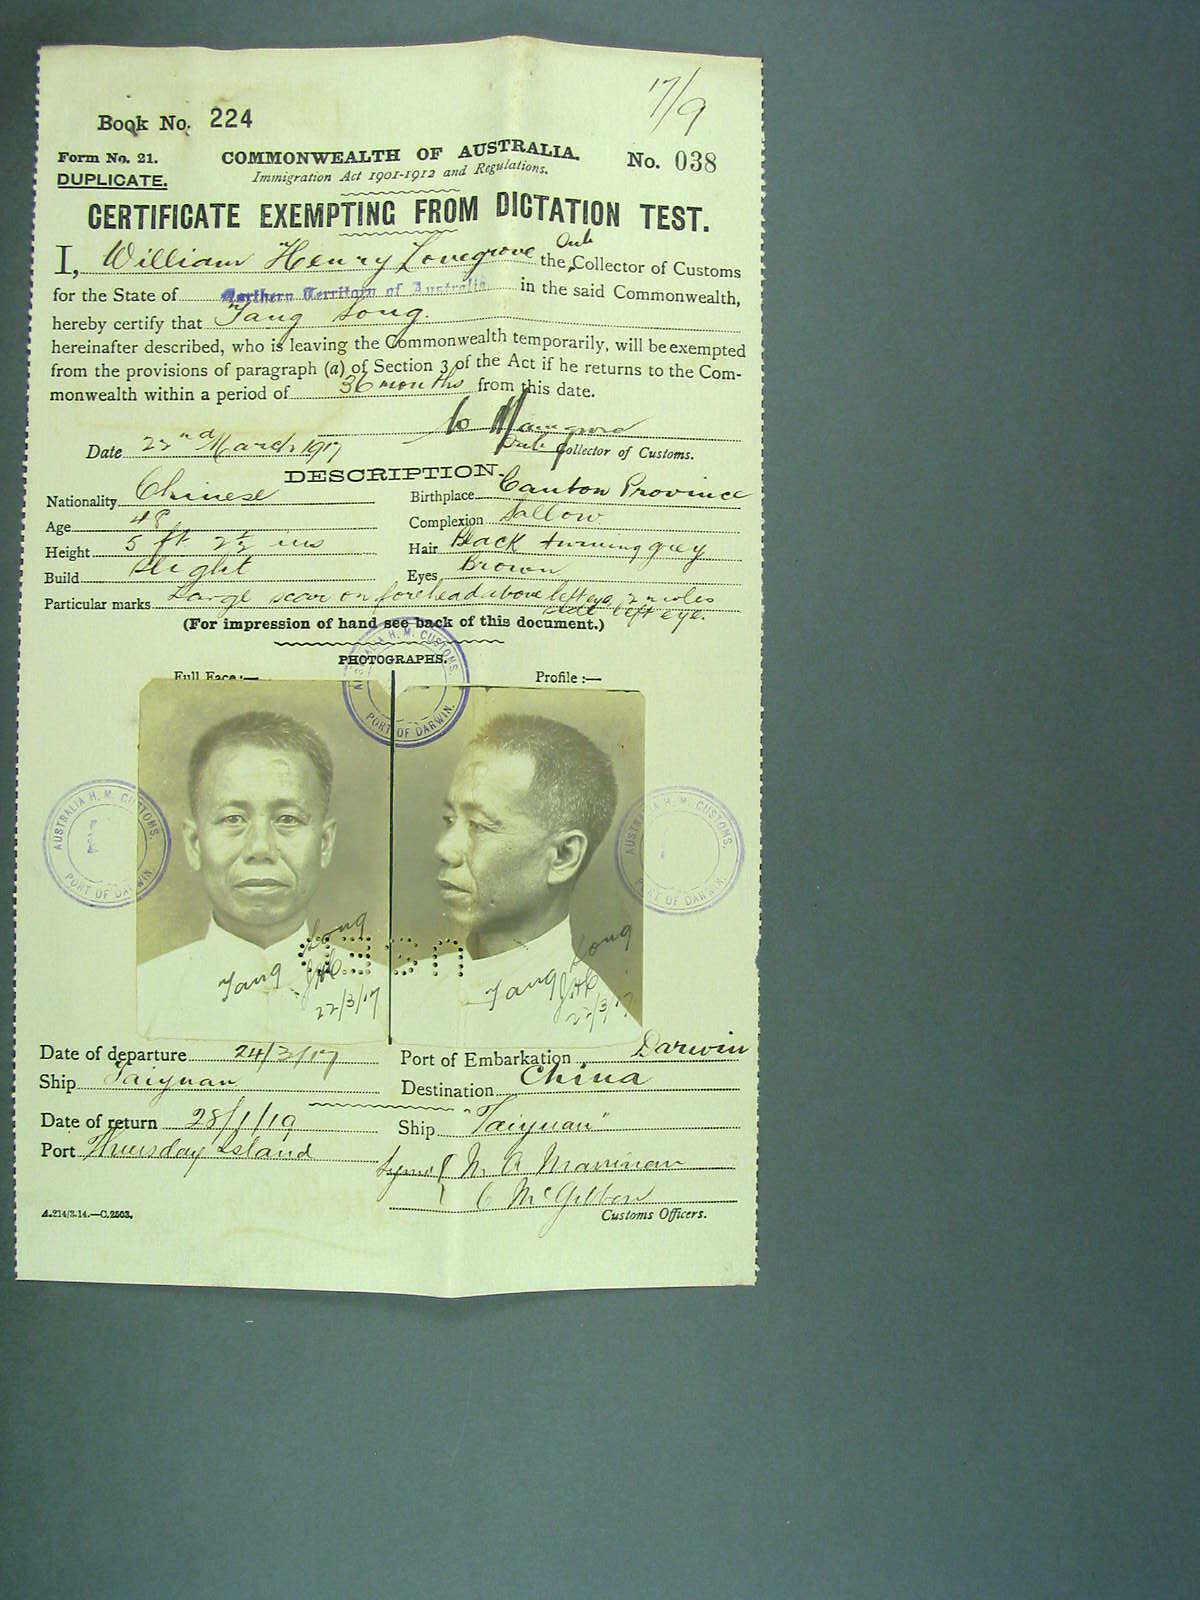 17/9
Book No. 224
Form No. 21. COMMONWEALTH OF AUSTRALIA. No. 038
DUPLICATE. Immigration Act 1901-1912 and Regulations.
CERTIFICATE EXEMPTING FROM DICTATION TEST.
I, William Henry Lovegrove the Sub Collector of Customs
for the State of Northern Territory of Australia in the said Commonwealth,
hereby certify that Fang Song.
hereinafter described, who is leaving the Commonwealth temporarily, will be exempted
from the provisions of paragraph (a) of Section 3 of the Act if he returns to the Com-
monwealth within a period of 36 months from this date.
Date 22nd March 1917 Sub Collector of Customs.
DESCRIPTION.
Nationality Chinese Birthplace Canton Province
Age 48 Complexion Sallow
Height 5 ft 2½ ins Hair Black turning grey
Build Slight Eyes Brown
Particular marks Large scar on forehead above left eye, 2 moles
left eye.
(For impression of hand see back of this document.)
PHOTOGRAPHS.
Full Face:— Profile :—
AUSTRALIA H. M. CUSTOMS. PORT OF DARWIN.
AUSTRALIA H. M. CUSTOMS. PORT OF DARWIN.
AUSTRALIA H. M. CUSTOMS. PORT OF DARWIN.
Fang Song
22/3/17
Fang Song
22/3/17
Date of departure 24/3/17 Port of Embarkation Darwin
Ship Taiyuan Destination China
Date of return 28/1/19 Ship "Taiyuan"
Port Thursday Island
C McGibbon
A.214/3.14.—C.2503. Customs Officers.